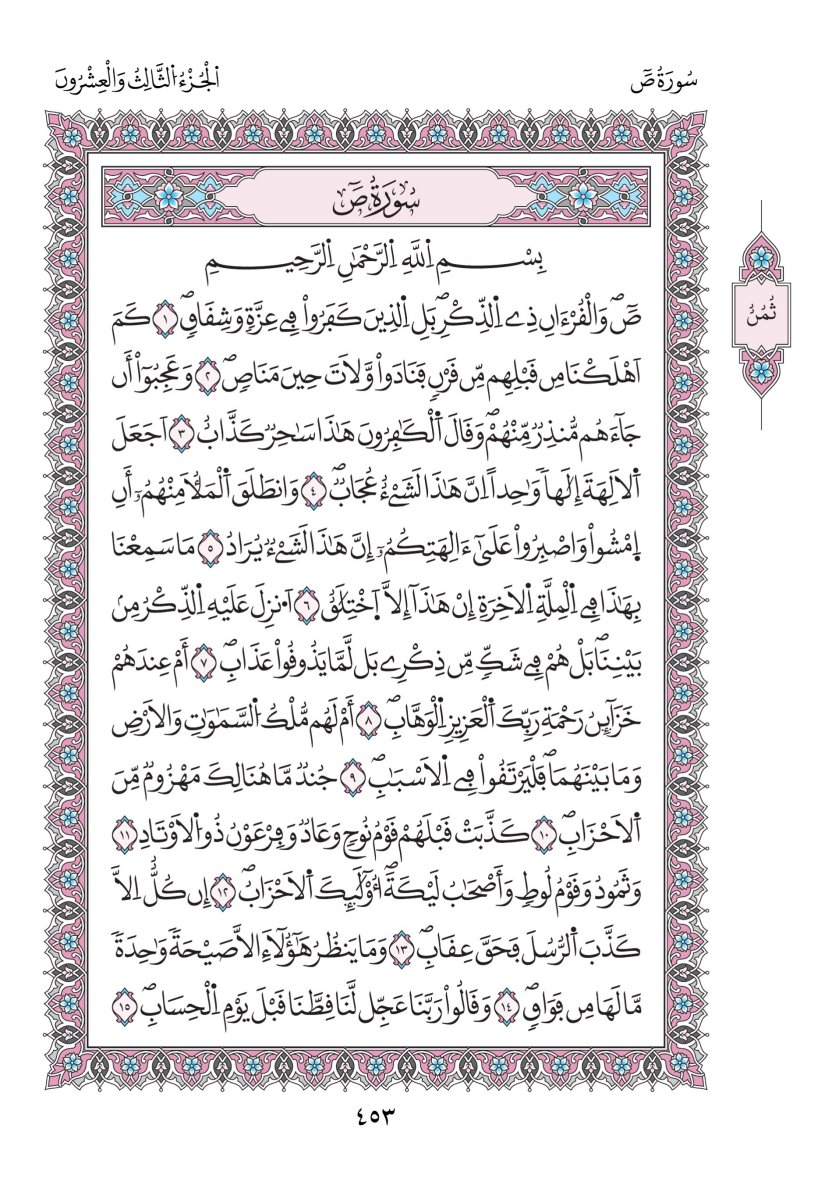 سُورَةُ صٓ
اَلْجُزْءُ اَلثَّالِثُ وَالْعِشْرُونَ
سُورَةُ صٓ
ثُمُن
بِسْمِ اِللَّهِ اِلرَّحْمَٰنِ اِلرَّحِيمِ
صٓۖ وَالْقُرْءَانِ ذِے اِلذِّكْرِۖ بَلِ اِلذِينَ كَفَرُواْ فِے عِزَّةٖ وَشِقَاقٖۖ ١ كَمَ
اَهْلَكْنَا مِن قَبْلِهِم مِّن قَرْنٖ فَنَادَواْ وَّلَاتَ حِينَ مَنَاصٖۖ ٢ وَعَجِبُوٓاْ أَن
جَآءَهُم مُّنذِرٞ مِّنْهُمْۖ وَقَالَ اَلْكَٰفِرُونَ هَٰذَا سَٰحِرٞ كَذَّابٌ ٣ اَجَعَلَ
اَلَالِهَةَ إِلَٰهاٗ وَٰحِداً اِنَّ هَٰذَا لَشَےْءٌ عُجَابٞۖ ٤ وَانطَلَقَ اَلْمَلَأُ مِنْهُمُۥٓ أَنِ
اِمْشُواْ وَاصْبِرُواْ عَلَىٰٓ ءَالِهَتِكُمُۥٓ إِنَّ هَٰذَا لَشَےْءٞ يُرَادُ ٥ مَا سَمِعْنَا
بِهَٰذَا فِے اِلْمِلَّةِ اِلَاخِرَةِ إِنْ هَٰذَآ إِلَّا اَخْتِلَٰقٌ ٦ اَ۟نزِلَ عَلَيْهِ اِلذِّكْرُ مِنۢ
بَيْنِنَاۖ بَلْ هُمْ فِے شَكّٖ مِّن ذِكْرِے بَل لَّمَّا يَذُوقُواْ عَذَابِۖ ٧ أَمْ عِندَهُمْ
خَزَآئِنُ رَحْمَةِ رَبِّكَ اَلْعَزِيزِ اِلْوَهَّابِۖ ٨ أَمْ لَهُم مُّلْكُ اُلسَّمَٰوَٰتِ وَالَارْضِ
وَمَا بَيْنَهُمَاۖ فَلْيَرْتَقُواْ فِے اِلَاسْبَٰبِۖ ٩ جُندٞ مَّا هُنَالِكَ مَهْزُومٞ مِّنَ
اَلَاحْزَابِۖ ١٠ كَذَّبَتْ قَبْلَهُمْ قَوْمُ نُوحٖ وَعَادٞ وَفِرْعَوْنُ ذُو اُلَاوْتَادِ ١١
وَثَمُودُ وَقَوْمُ لُوطٖ وَأَصْحَٰبُ لَيْكَةَۖ أُوْلَٰٓئِكَ اَلَاحْزَابُۖ ١٢ إِن كُلٌّ اِلَّا
كَذَّبَ اَلرُّسُلَ فَحَقَّ عِقَابِۖ ١٣ وَمَا يَنظُرُ هَٰٓؤُلَآءِ اِلَّا صَيْحَةٗ وَٰحِدَةٗ
مَّا لَهَا مِن فَوَاقٖۖ ١٤ وَقَالُواْ رَبَّنَا عَجِّل لَّنَا قِطَّنَا قَبْلَ يَوْمِ اِلْحِسَابِۖ ١٥
٤٥٣